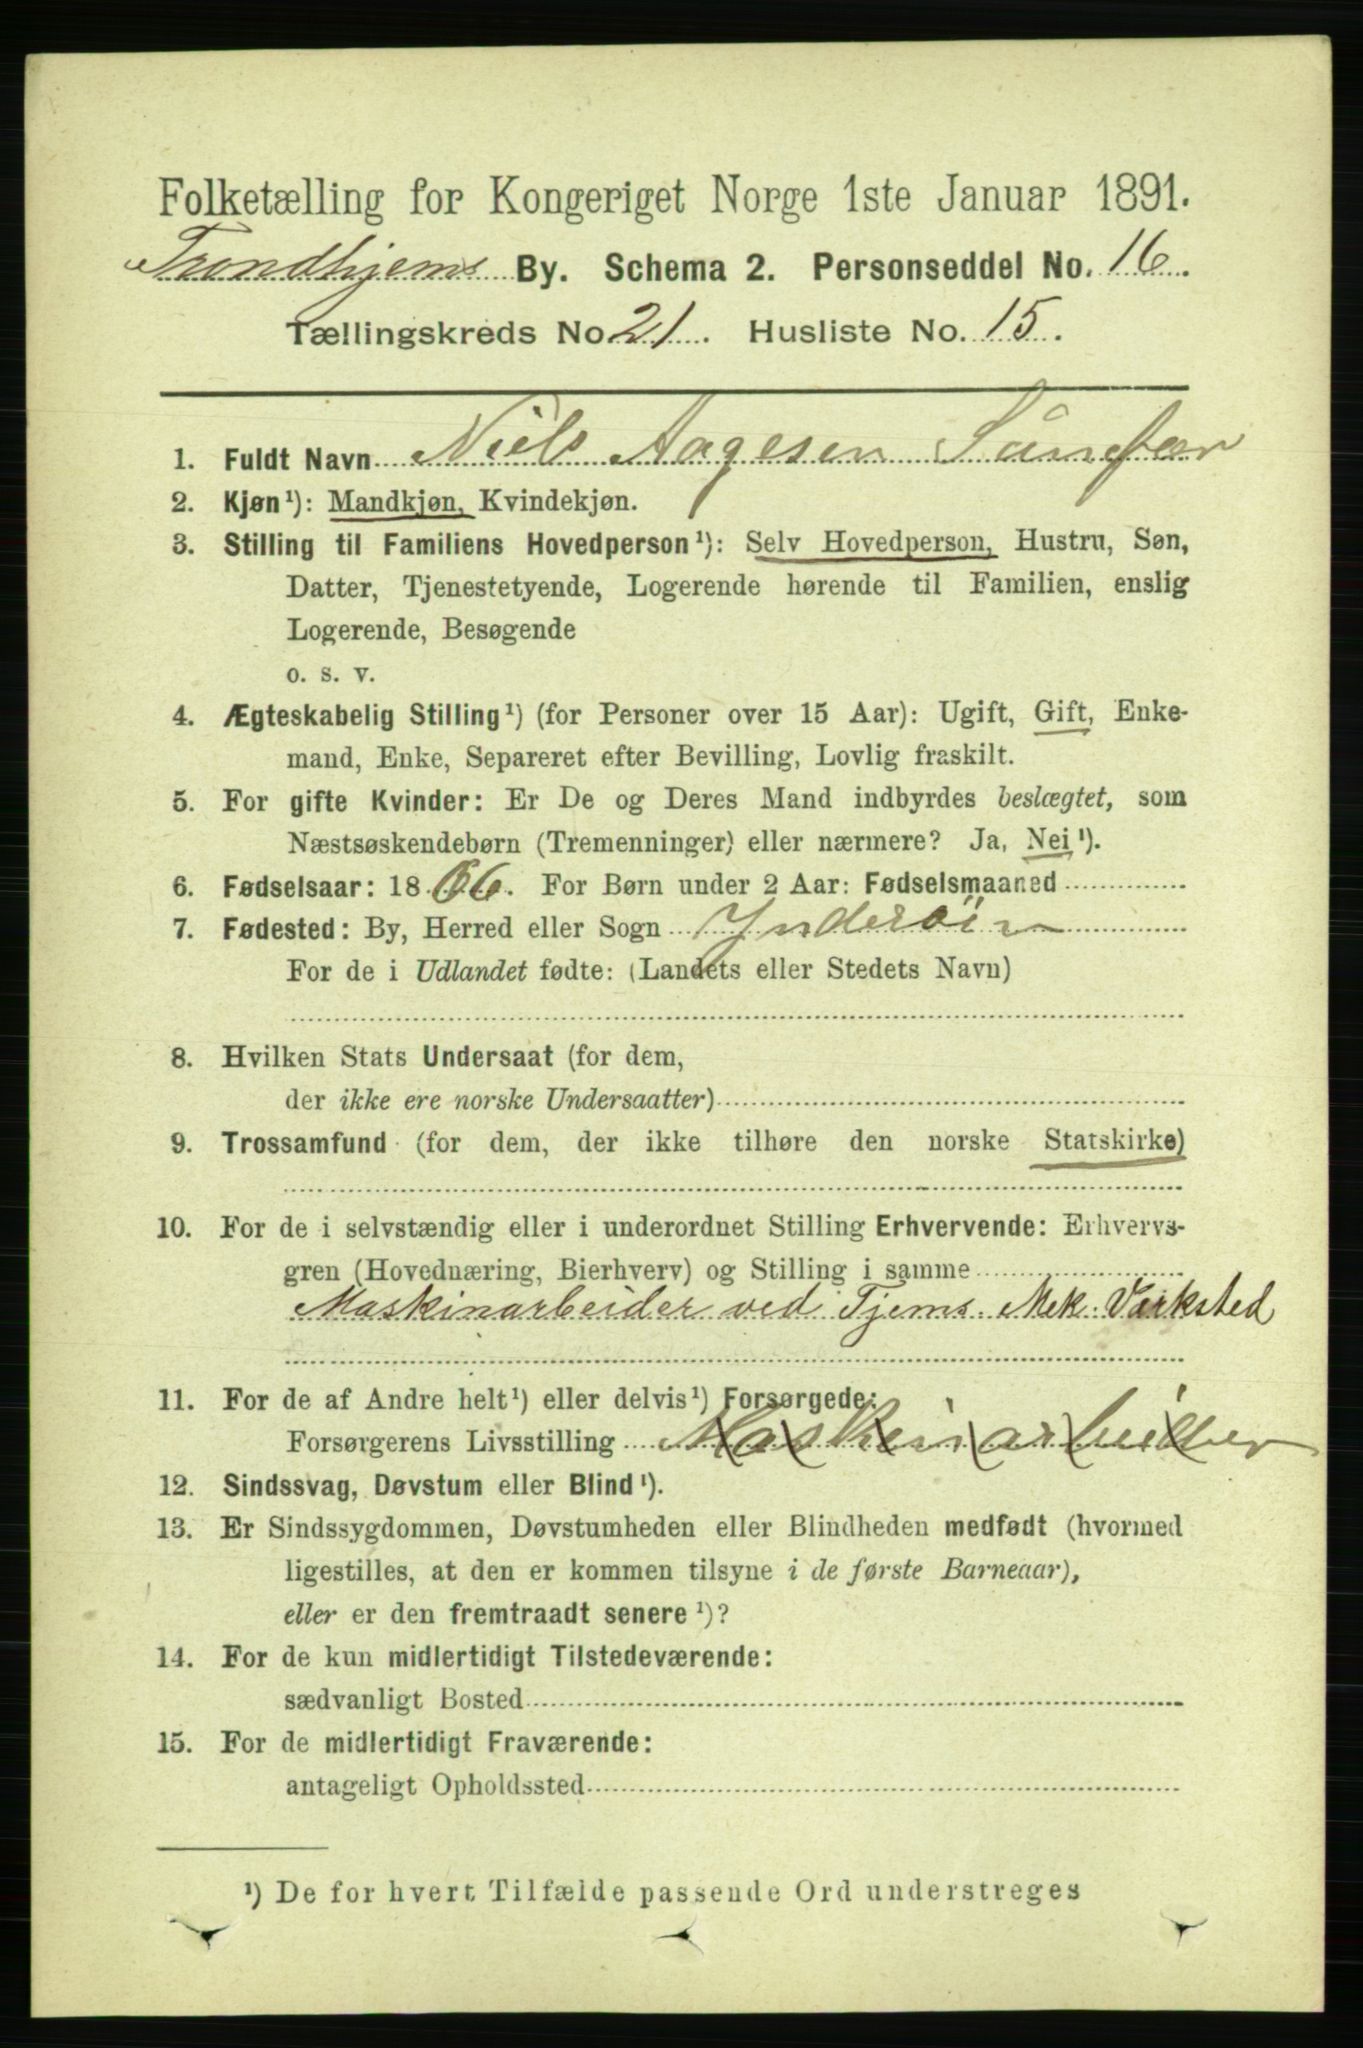 Folketælling for Kongeriget Norge 1ste Januar 1891.
Trondhjems By. Schema 2. Personseddel No. 16.
Tællingskreds No. 21. Husliste No. 15.
1. Fuldt Navn Niels Aagesen
2. Kjøn¹): Mandkjøn, Kvindekjøn.
3. Stilling til Familiens Hovedperson¹): Selv Hovedperson, Hustru, Søn,
Datter, Tjenestetyende, Logerende hørende til Familien, enslig
Logerende, Besøgende
o. s. v.
4. Ægteskabelig Stilling¹) (for Personer over 15 Aar): Ugift, Gift, Enke-
mand, Enke, Separeret efter Bevilling, Lovlig fraskilt.
5. For gifte Kvinder: Er De og Deres Mand indbyrdes beslægtet, som
Næstsøskendebørn (Tremenninger) eller nærmere? Ja, Nei¹).
6. Fødselsaar: 1866. For Børn under 2 Aar: Fødselsmaaned
7. Fødested: By, Herred eller Sogn Ynderöin
For de i Udlandet fødte: (Landets eller Stedets Navn)
8. Hvilken Stats Undersaat (for dem,
der ikke ere norske Undersaatter)
9. Trossamfund (for dem, der ikke tilhøre den norske Statskirke)
10. For de i selvstændig eller i underordnet Stilling Erhvervende: Erhvervs-
gren (Hovednæring, Bierhverv) og Stilling i samme
Maskinarbeider ved Tjems. Mek. Værksted
11. For de af Andre helt¹) eller delvis¹) Forsørgede:
Forsørgerens Livsstilling Maskinarbeider
12. Sindssvag, Døvstum eller Blind¹).
13. Er Sindssygdommen, Døvstumheden eller Blindheden medfødt (hvormed
ligestilles, at den er kommen tilsyne i de første Barneaar),
eller er den fremtraadt senere¹)?
14. For de kun midlertidigt Tilstedeværende:
sædvanligt Bosted
15. For de midlertidigt Fraværende:
antageligt Opholdssted
¹) De for hvert Tilfælde passende Ord understreges